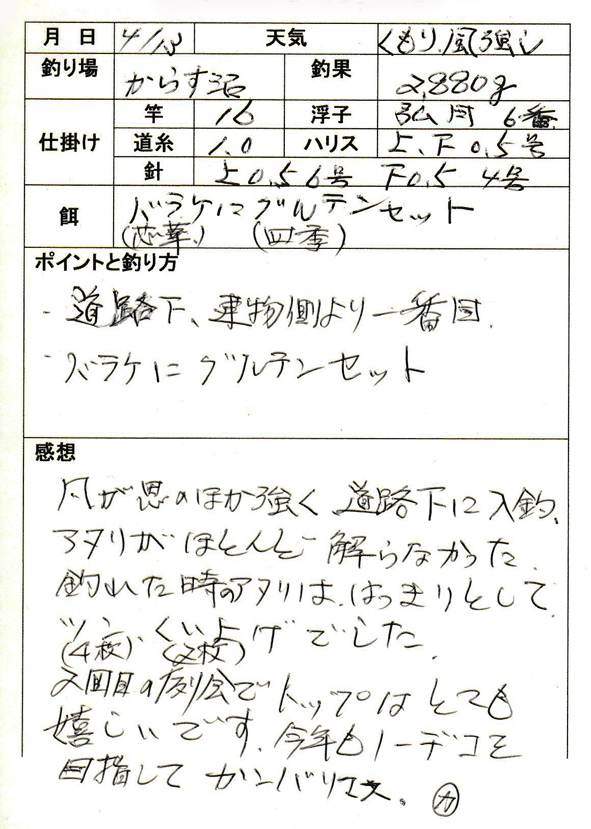 月 日 4/13 天気 くもり、風強し
釣り場 からす沼 釣果 2,880g
仕掛け 竿 16 浮子 弘月 6番
道糸 1.0 ハリス 上、下 0.5号
針 上0.5 6号 下0.5 4号
餌 バラケにグルテンセット
(芯華) (四季)
ポイントと釣り方
・道路下、建物側より一番目.
・バラケにグルテンセット
感想
風が思のほか強く 道路下に入釣.
アタリがほとんど 解らなかった.
釣れた時のアタリは、はっきりとして
ツン くい上げでした.
(4枚) (2枚)
2回目の例会でトップはとても
嬉しいです.今年もノーデコを
目指して ガンバリマス。 カ